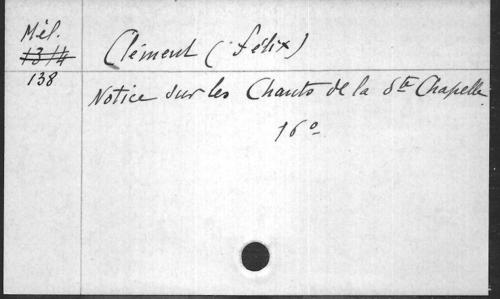 Mél.
1314
138
Clément (Félix)
Notice sur les Chants de la Ste Chapelle
16º